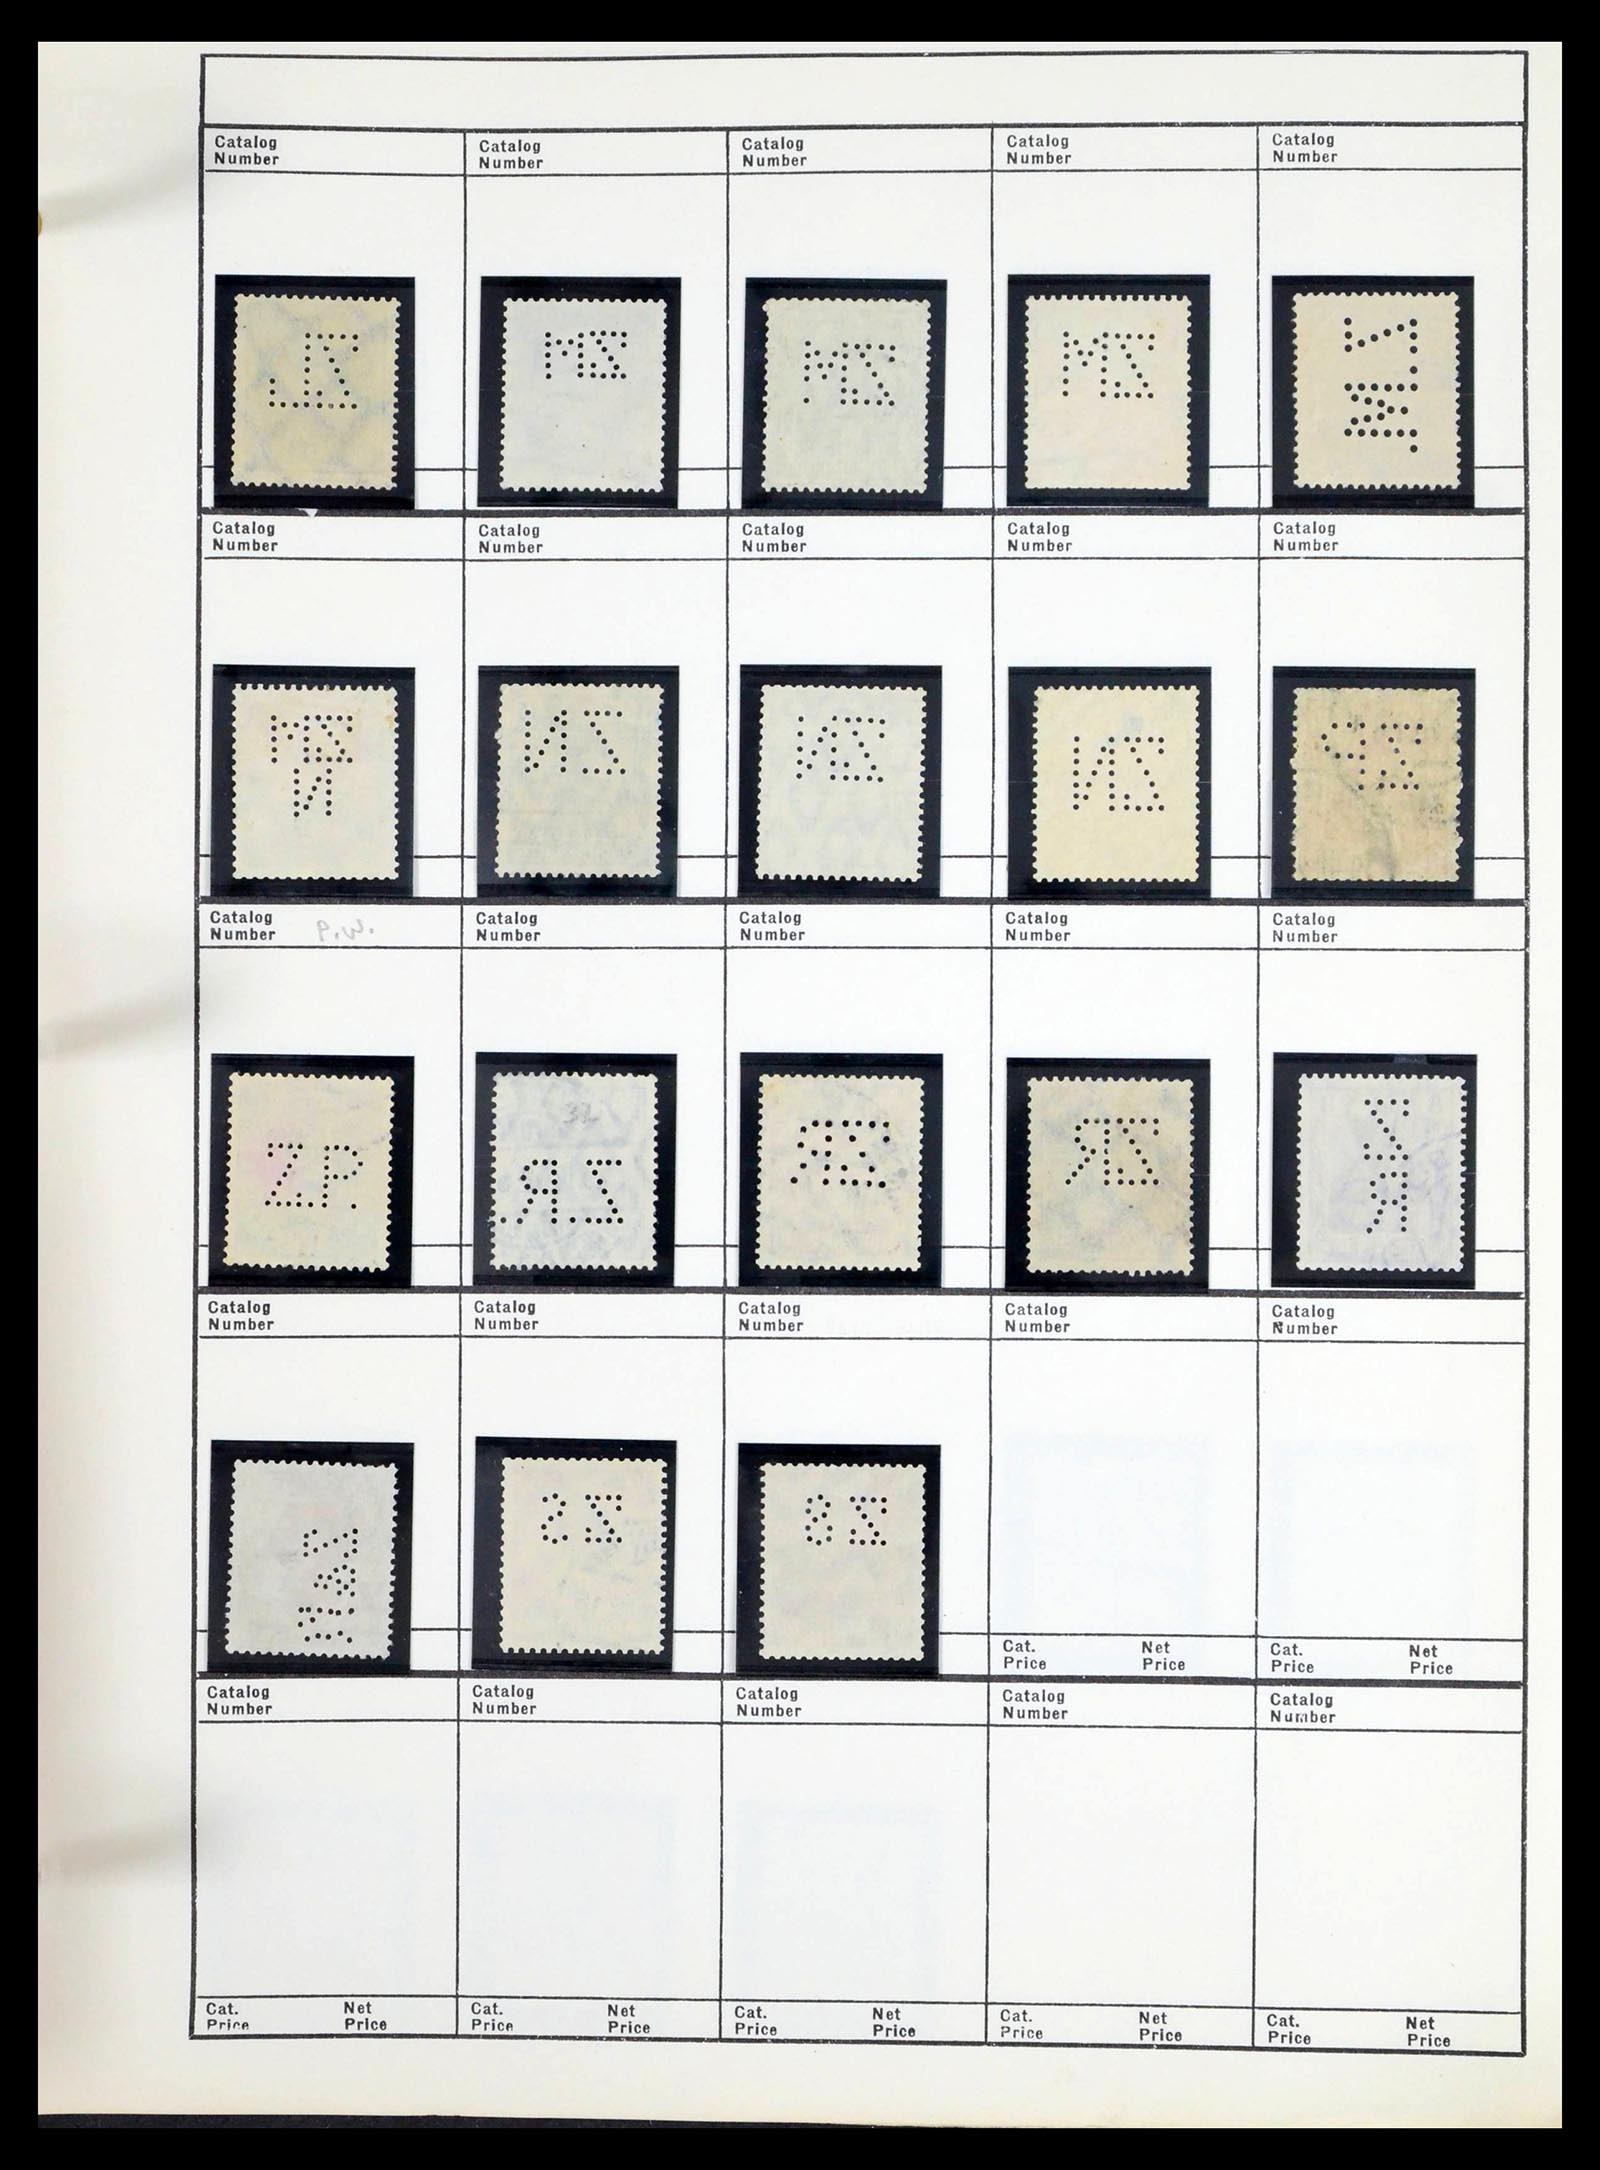 Catalog Number Catalog Number Catalog Number Catalog Number Catalog Number
MZ MZ MZ
MZ NZ NZ NZ
N
Catalog Number Catalog Number Catalog Number Catalog Number Catalog Number
Catalog Number Catalog Number Catalog Number Catalog Number Catalog Number
Z.P.
32
Catalog Number Catalog Number Catalog Number Catalog Number Catalog Number
S Z
8 Z
Cat. Price Net Price Cat. Price Net Price
Catalog Number Catalog Number Catalog Number Catalog Number Catalog Number
Cat. Price Net Price Cat. Price Net Price Cat. Price Net Price Cat. Price Net Price Cat. Price Net Price